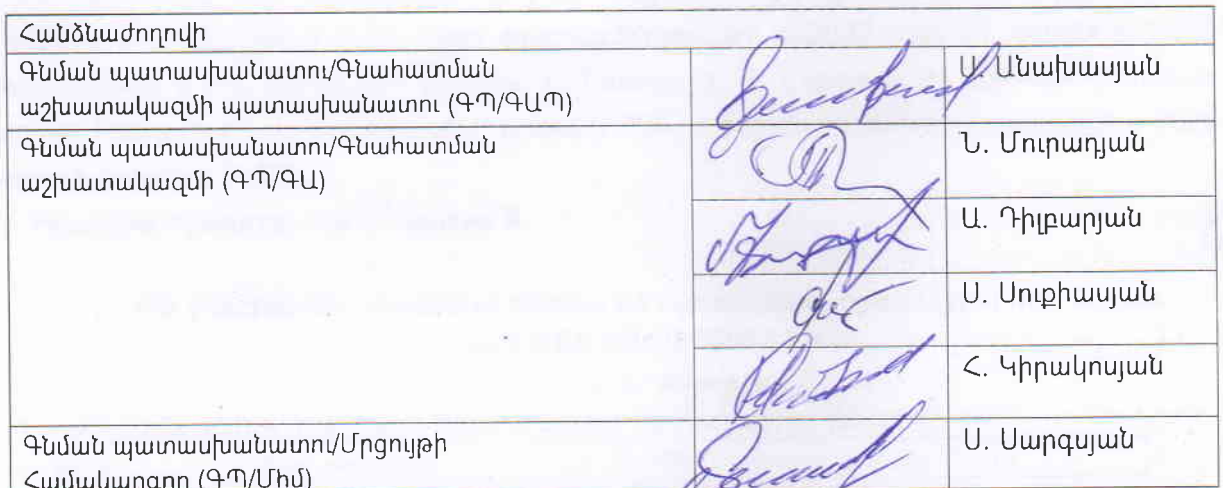 Հանձնաժողովի
Գնման պատասխանատու/Գնահատման
աշխատակազմի պատասխանատու (ԳՊ/ԳԱՊ)
Ա. Անախասյան
Գնման պատասխանատու/Գնահատման
աշխատակազմի (ԳՊ/ԳԱ)
Ն. Մուրադյան
Ա. Դիլբարյան
Ս. Սուքիասյան
Հ. Կիրակոսյան
Գնման պատասխանատու/Մրցույթի
Համակարգող (ԳՊ/Միմ)
Ս. Սարգսյան